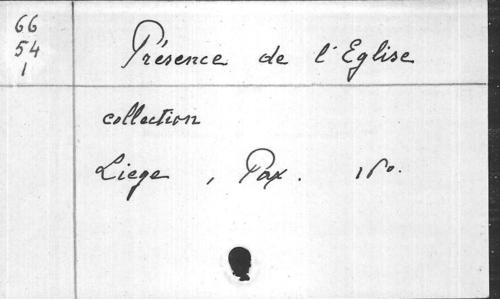 66
54
1
Présence de l'Eglise
collection
Liege, Pax. 16°.